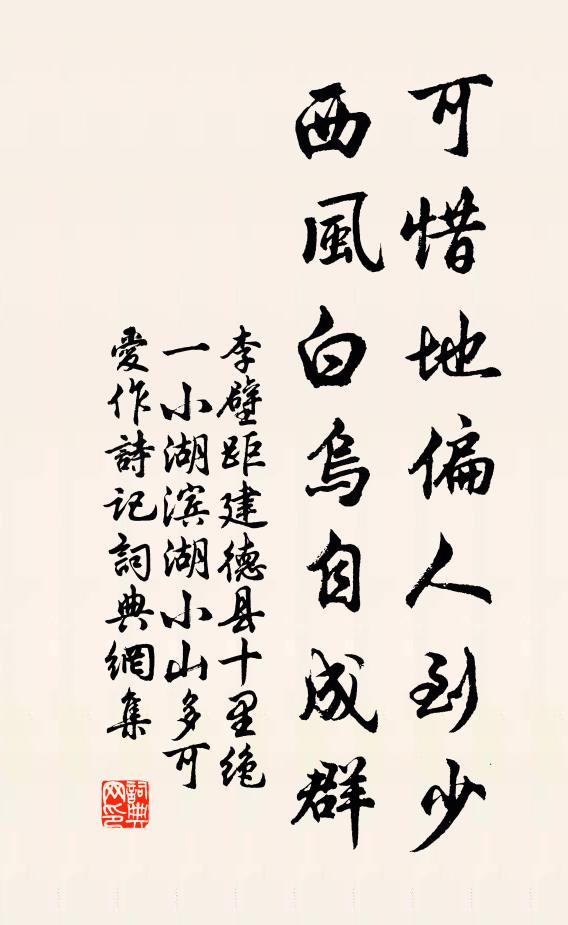 可惜地偏人到少
西風白烏自成群
李壁距建德县十里绝
一小湖滨湖小山多可
愛作詩记詞典網集
詞典
网印